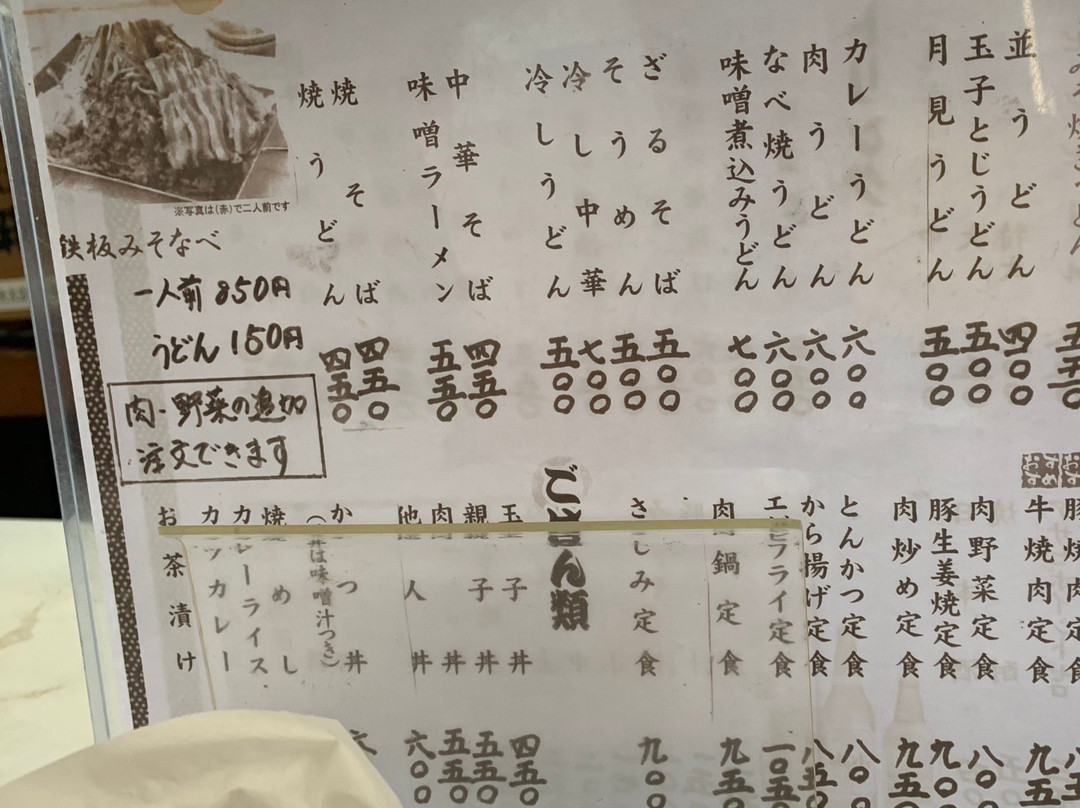 並うどん 四〇〇
玉子とじうどん 五〇〇
月見うどん 五〇〇
カレーうどん 六〇〇
肉うどん 六〇〇
なべ焼うどん 六〇〇
味噌煮込みうどん 七〇〇
ざるそば 五〇〇
そうめん 五〇〇
冷し中華 七〇〇
冷しうどん 五〇〇
中華そば 四五〇
味噌ラーメン 五五〇
焼そば 四五〇
焼うどん 四五〇
※写真は(赤)で二人前です
鉄板みそなべ
一人前 850円
うどん 150円
肉・野菜の追加
注文できます
牛焼肉定食 九五
肉野菜定食 八〇
豚生姜焼定食 九〇〇
肉炒め定食 九五
とんかつ定食 八〇
から揚げ定食 八五〇
エビフライ定食 一〇五
肉鍋定食 九五
さしみ定食 九〇
ごはん類
玉子丼 四五〇
親子丼 五五〇
肉丼 五五〇
他人丼 六〇〇
かつ丼 六
(丼は味噌汁つき)
焼めし
カレーライス
カツカレー
お茶漬け